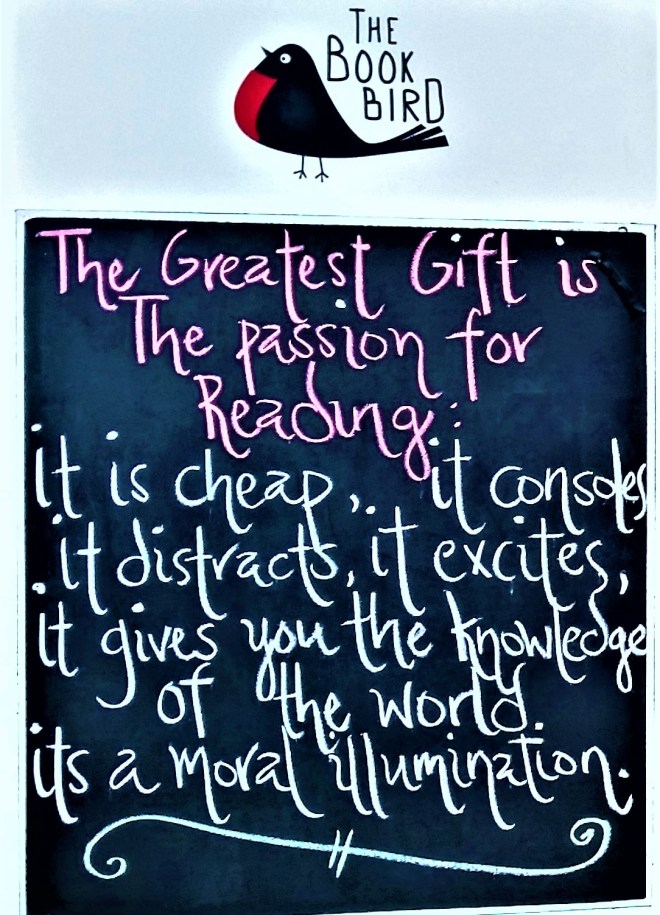 THE
BOOK
BIRD
The Greatest Gift is
The passion for
Reading:
it is cheap, it consoles
it distracts, it excites,
it gives you the knowledge
of the world.
its a moral illumination.